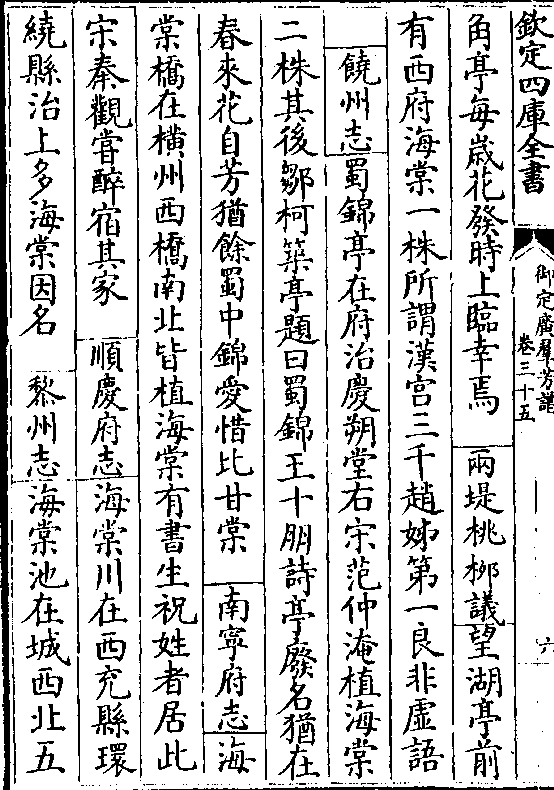 欽定四庫全書
御定廣羣芳譜
卷三十五
六
角亭每歳花發時上臨幸焉　兩堤桃柳議望湖亭前
有西府海棠一株所謂漢宫三千趙姊第一良非虚語
饒州志蜀錦亭在府治慶朔堂右宋范仲淹植海棠
二株其後鄒柯築亭題曰蜀錦王十朋詩亭廢名猶在
春來花自芳猶餘蜀中錦愛惜比甘棠　南寧府志海
棠橋在横州西橋南北皆植海棠有書生祝姓者居此
宋秦觀嘗醉宿其家　順慶府志海棠川在西充縣環
繞縣治上多海棠因名　黎州志海棠池在城西北五